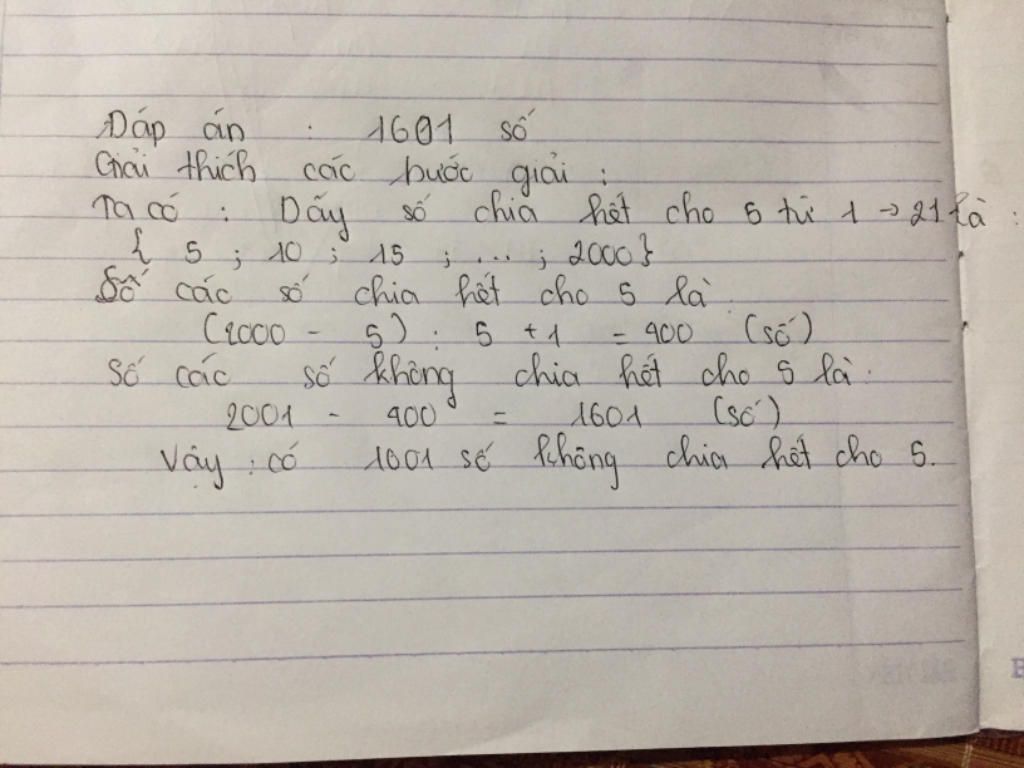 Đáp án : 1601 số
Giải thích các bước giải :
Ta có : Dãy số chia hết cho 5 từ 1 → 21 là :
{ 5 ; 10 ; 15 ; ... ; 2000}
Số các số chia hết cho 5 là
(2000 - 5) : 5 + 1 = 400 (số)
Số các số không chia hết cho 5 là :
2001 - 400 = 1601 (số)
Vậy : có 1601 số không chia hết cho 5.